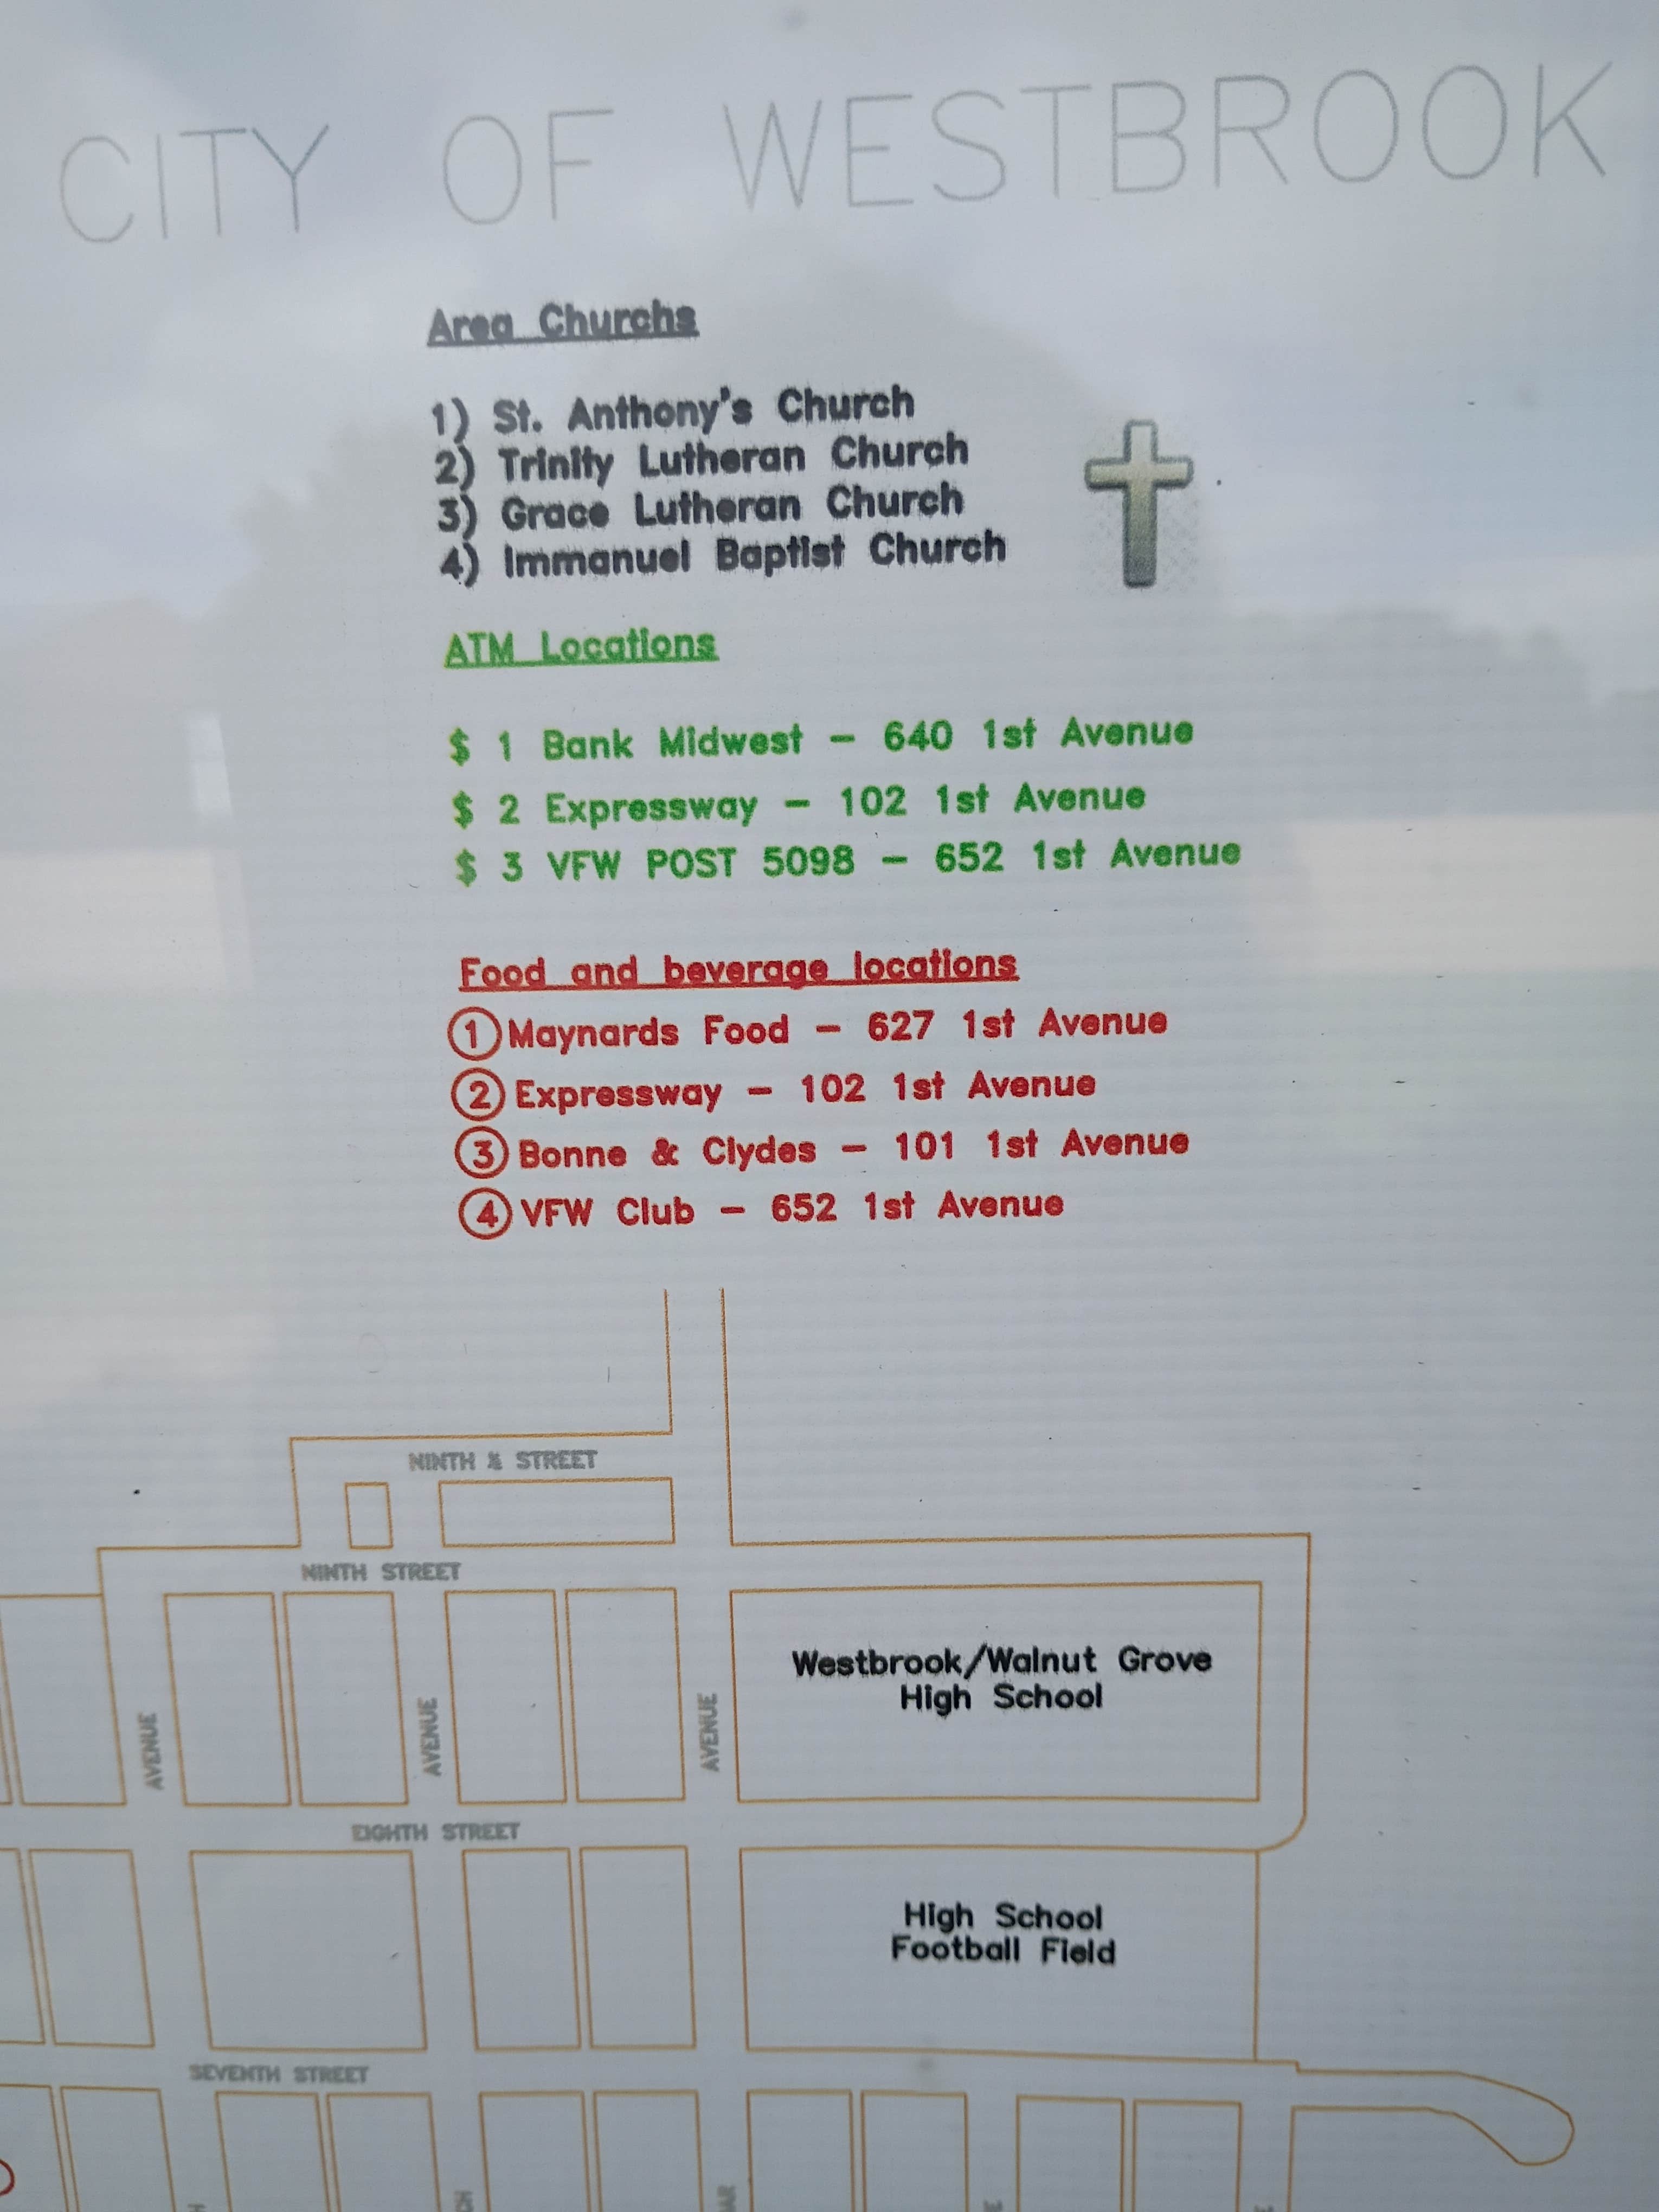 CITY OF WESTBROOK
Area Churchs
1) St. Anthony's Church
2) Trinity Lutheran Church
3) Grace Lutheran Church
4) Immanuel Baptist Church
ATM Locations
$ 1 Bank Midwest – 640 1st Avenue
$ 2 Expressway – 102 1st Avenue
$ 3 VFW POST 5098 – 652 1st Avenue
Food and beverage locations
1 Maynards Food – 627 1st Avenue
2 Expressway – 102 1st Avenue
3 Bonne & Clydes – 101 1st Avenue
4 VFW Club – 652 1st Avenue
NINTH ½ STREET
NINTH STREET
Westbrook/Walnut Grove
High School
AVENUE
AVENUE
AVENUE
EIGHTH STREET
High School
Football Field
SEVENTH STREET